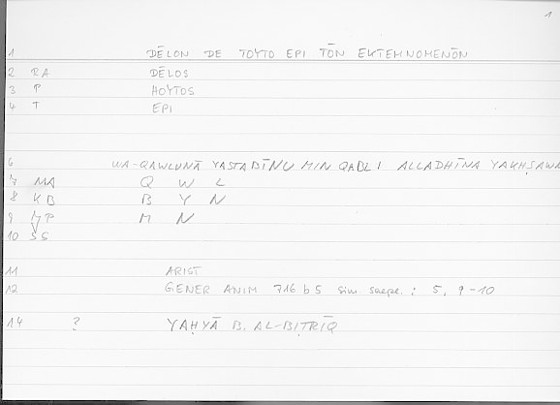 1
1 DĒLON DE TOYTO EPI TŌN EKTEMNOMENŌN
2 RA DĒLOS
3 P HOYTOS
4 T EPI
6 WA-QAWLUNĀ YASTABĪNU MIN QABLI ALLADHĪNA YAKHṢAWA
7 MA Q W L
8 KB B Y N
9 M N
10 SS
11 ARIST
12 GENER ANIM 716 b 5 sim saepe.: 5, 9-10
14 ? YAḤYĀ B. AL-BIṬRĪQ